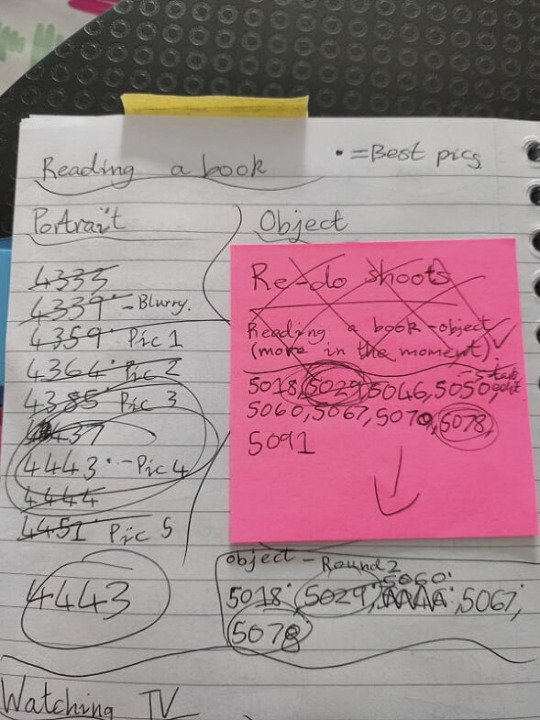 Reading a book
• = Best pics
Portrait
4333
4339• - Blurry.
4359• Pic 1
4364• Pic 2
4385• Pic 3
4437
4443• - Pic 4
4444
4451• Pic 5
4443
Object
Re-do shoots
Reading a book-object ✓
(more in the moment).
5018, 5029, 5046, 5050,
5060, 5067, 5070, 5078,
5091
object - Round 2
5060•
5018•, 5029•, 5067,
5078
Watching TV